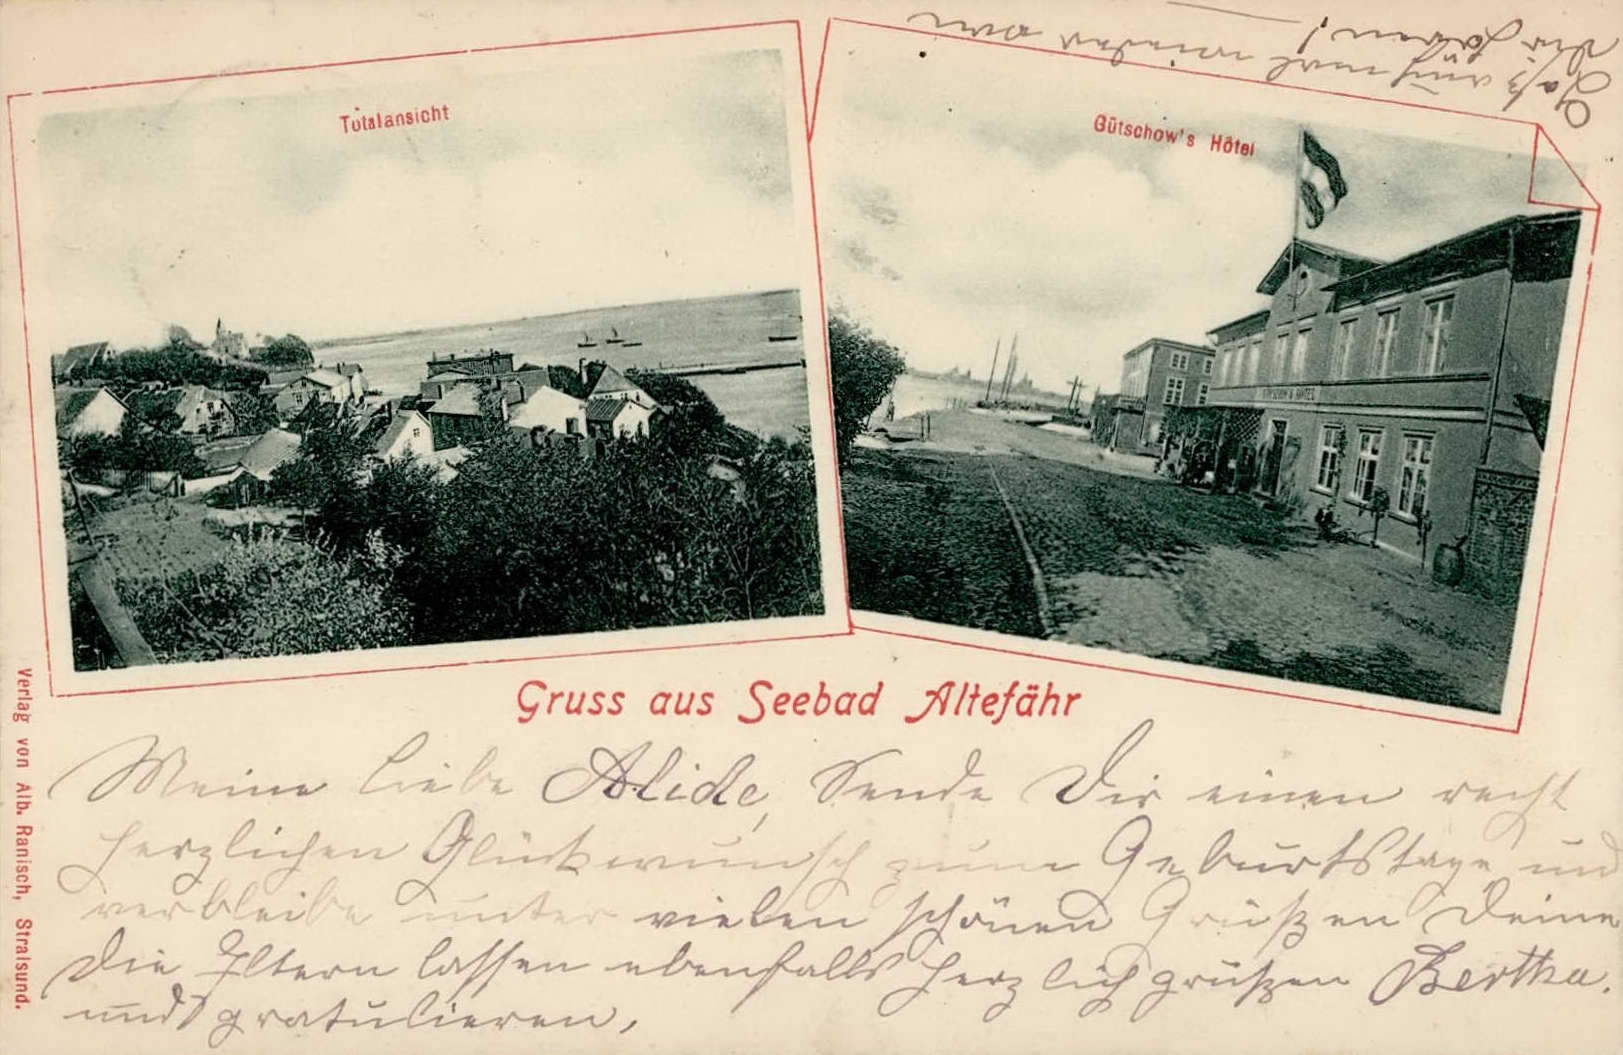 Totalansicht
Gütschow's Hôtel
Gruss aus Seebad Altefähr
Meine liebe Alide, Sende Dir einen recht
herzlichen Glückwunsch zum Geburtstage und
verbleibe unter vielen schönen Grüßen Deine
Bertha.
Die Eltern lassen ebenfalls herzlich grüßen
und gratulieren.
Laß auch mal wieder von
Dir hören!
Verlag von Alb. Ranisch, Stralsund.